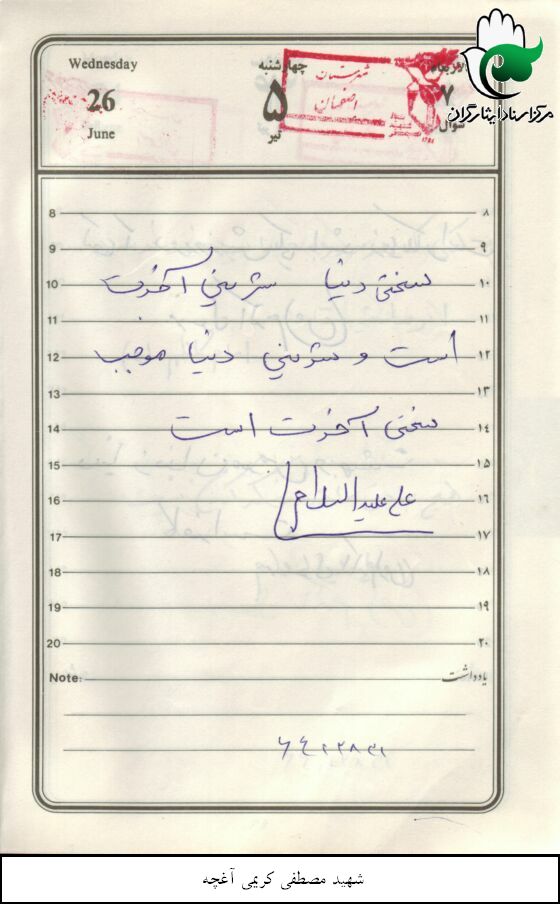 Wednesday
26
June
چهارشنبه
۵
تیر
شهرستان
اصفهان
۷
شوال
مرکز اسناد ایثارگران
8 ۸
9 ۹
10 سختی دنیا شیرینی آخرت ۱۰
11 ۱۱
12 است و شیرینی دنیا موجب ۱۲
13 ۱۳
14 سختی آخرت است ۱۴
15 ۱۵
16 علی علیه السلام ۱۶
17 ۱۷
18 ۱۸
19 ۱۹
20 ۲۰
Note: یادداشت
شهید مصطفی کریمی آغچه